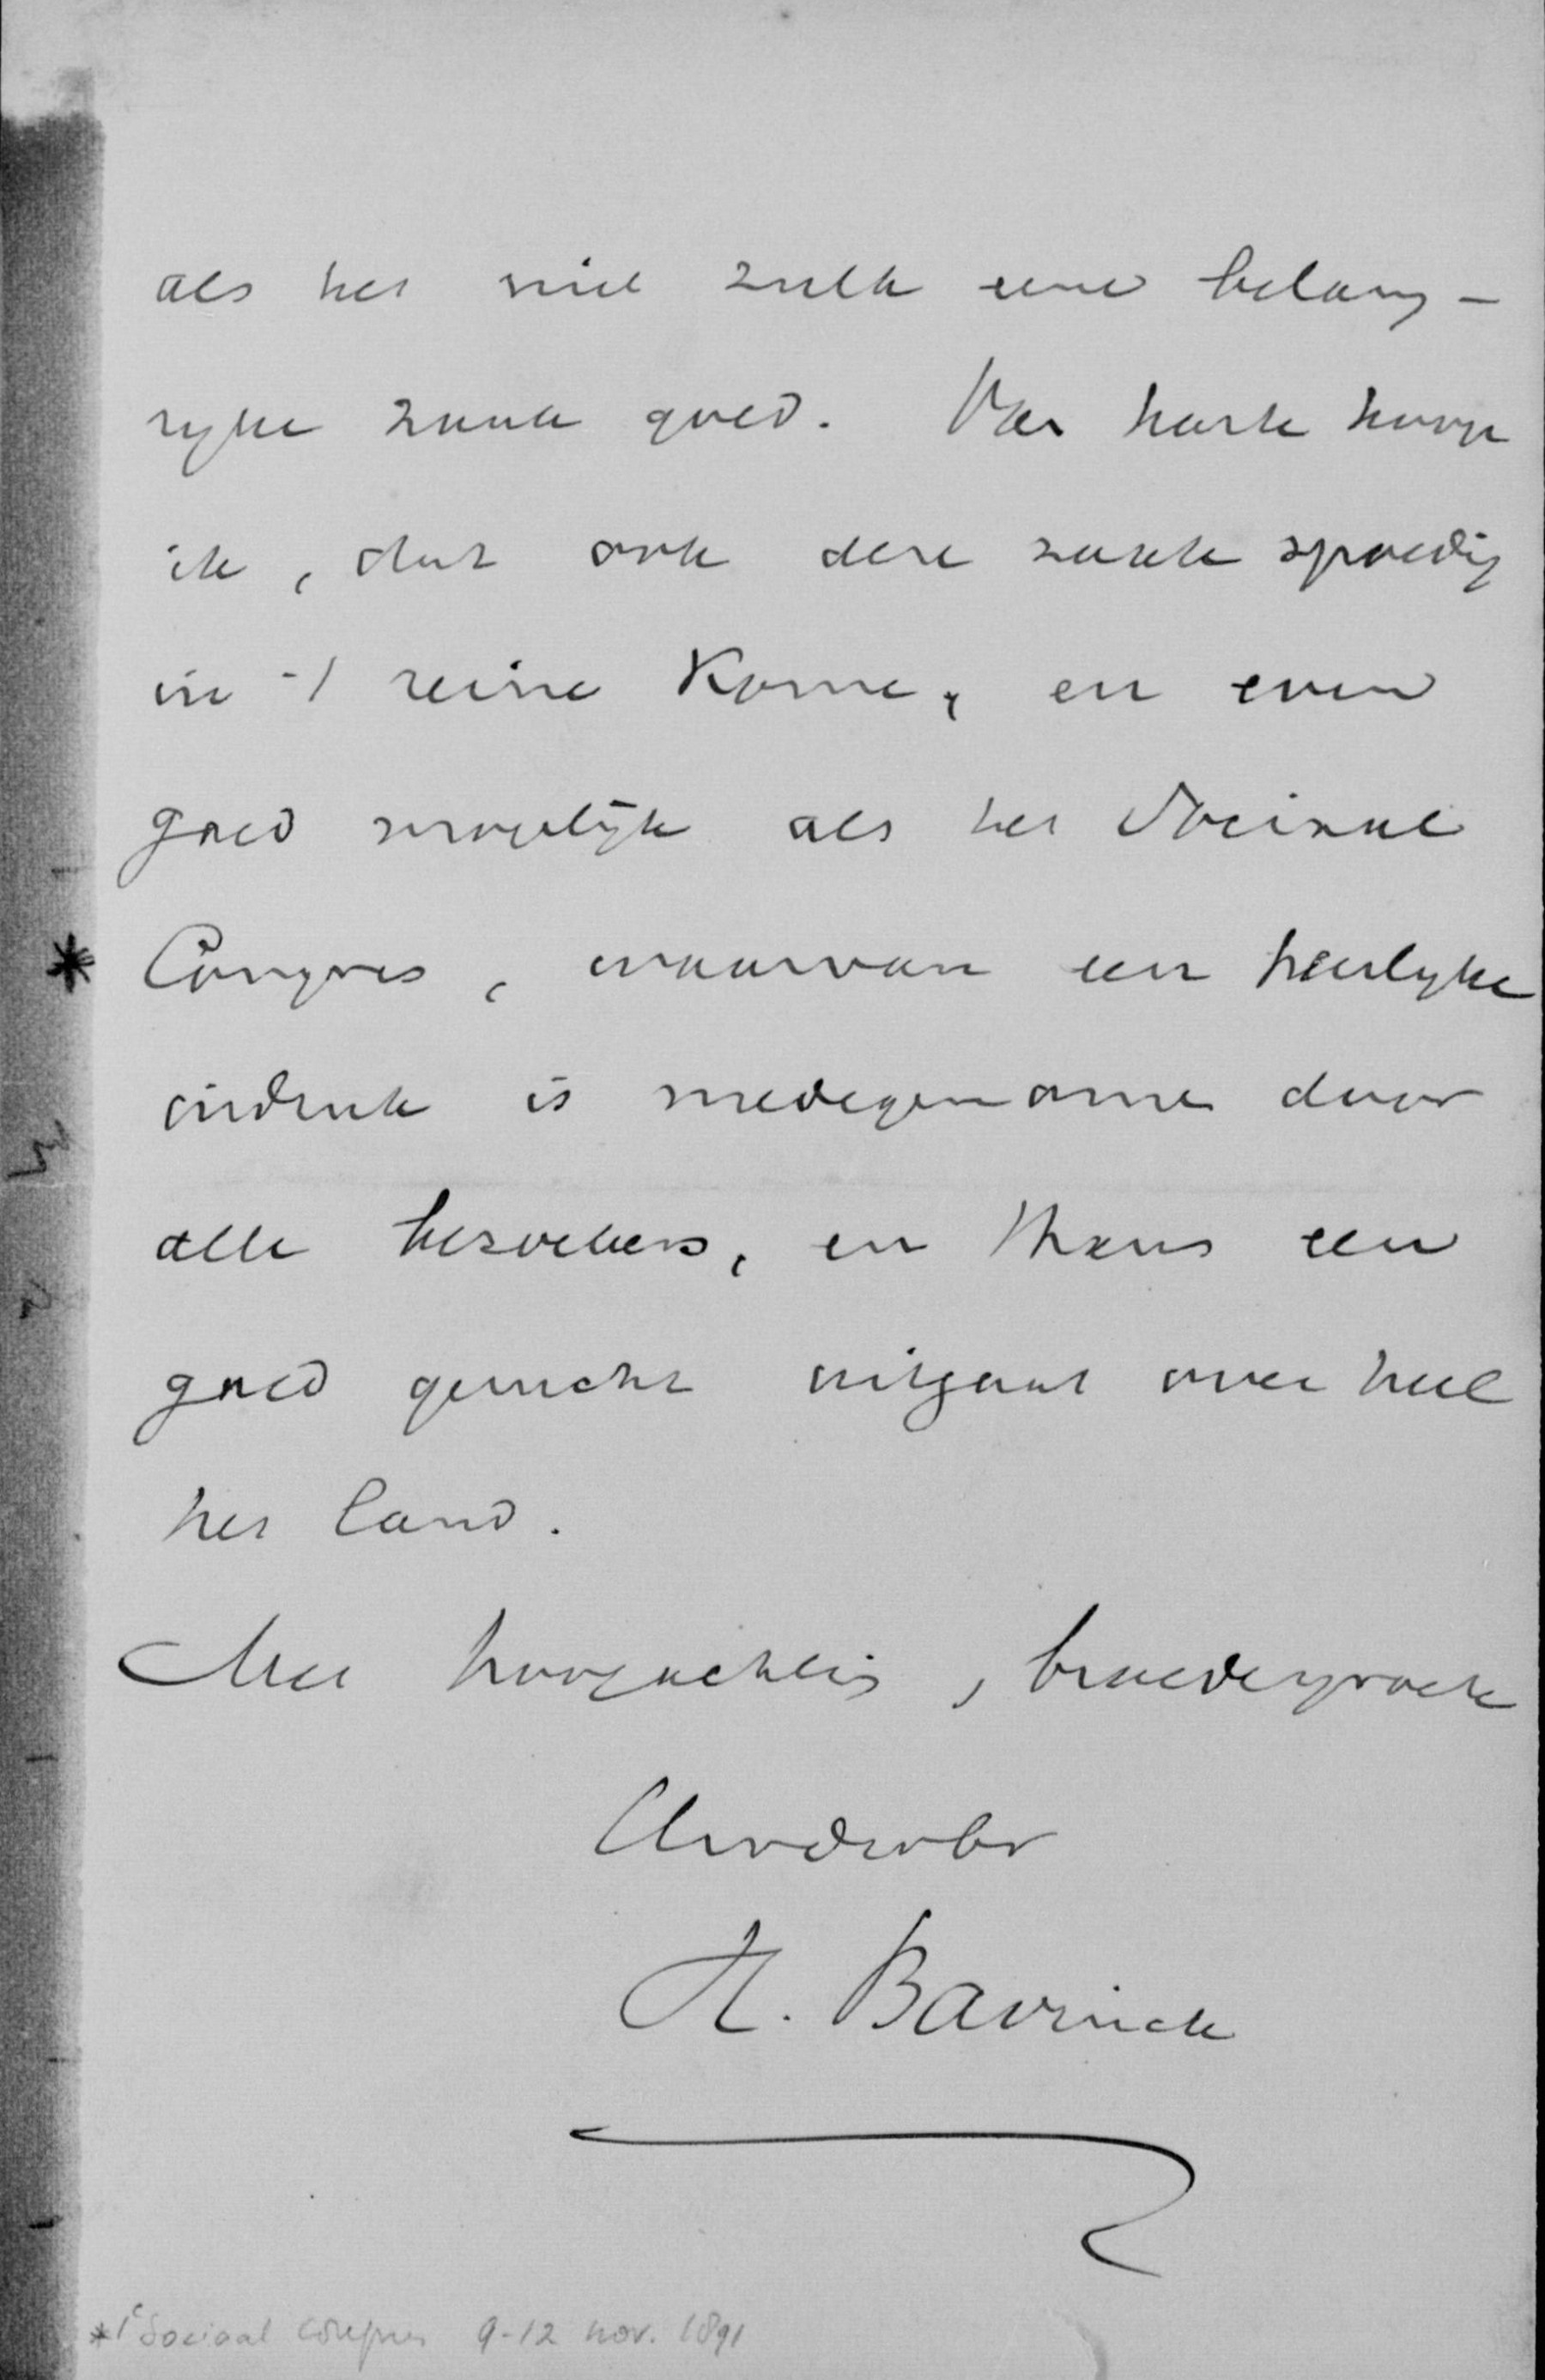 als het niet zulk eene belang-
rijke zaak goed. Van harte hoop
ik, dat ook deze zaak spoedig
in 't reine kome, en even
goed mogelijk als het Sociaal
* Congres, waarvan een heerlijke
indruk is medegenomen door
alle bezoekers, en thans een
goed gerucht uitgaat over heel
het land.
Met hoogachting, broedergroete
Uwdwbr
H. Bavinck
* 1e Sociaal congres 9-12 nov. 1891